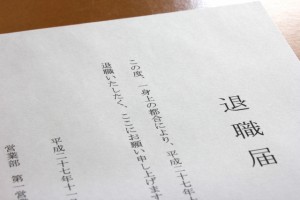 退職届
この度、一身上の都合により、平成二十七年十
退職いたしたく、ここにお願い申し上げます
平成二十七年十一
営業部 第一営